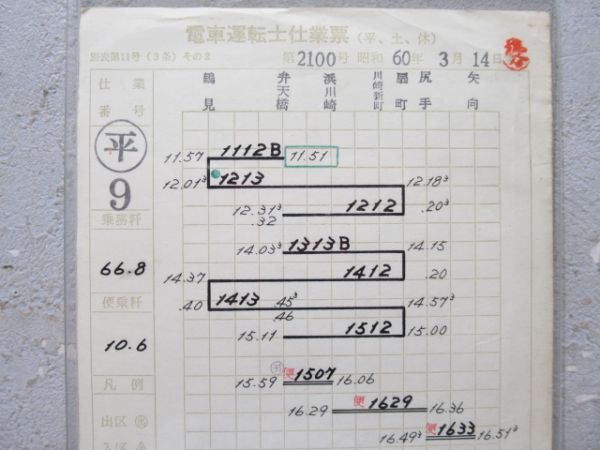 電車運転士仕業票(平、土、休)
別表第11号(3条)その2
第2100号 昭和60年3月14日
仕業番号
鶴見 弁天橋 浜川崎 川崎新町 扇町 尻手 矢向
平
9
乗務粁
66.8
便乗粁
10.6
凡例
出区
入区
11.57 1112B 11.51
12.01³ 1213 12.18³
12.31³ 1212 .20³
.32
14.03³ 1313B 14.15
14.37 1412 .20
.40 1413 .45³ 14.57³
.46
15.11 1512 15.00
15.59 便 1507 16.06
16.29 便 1629 16.36
16.49³ 便 1633 16.51³